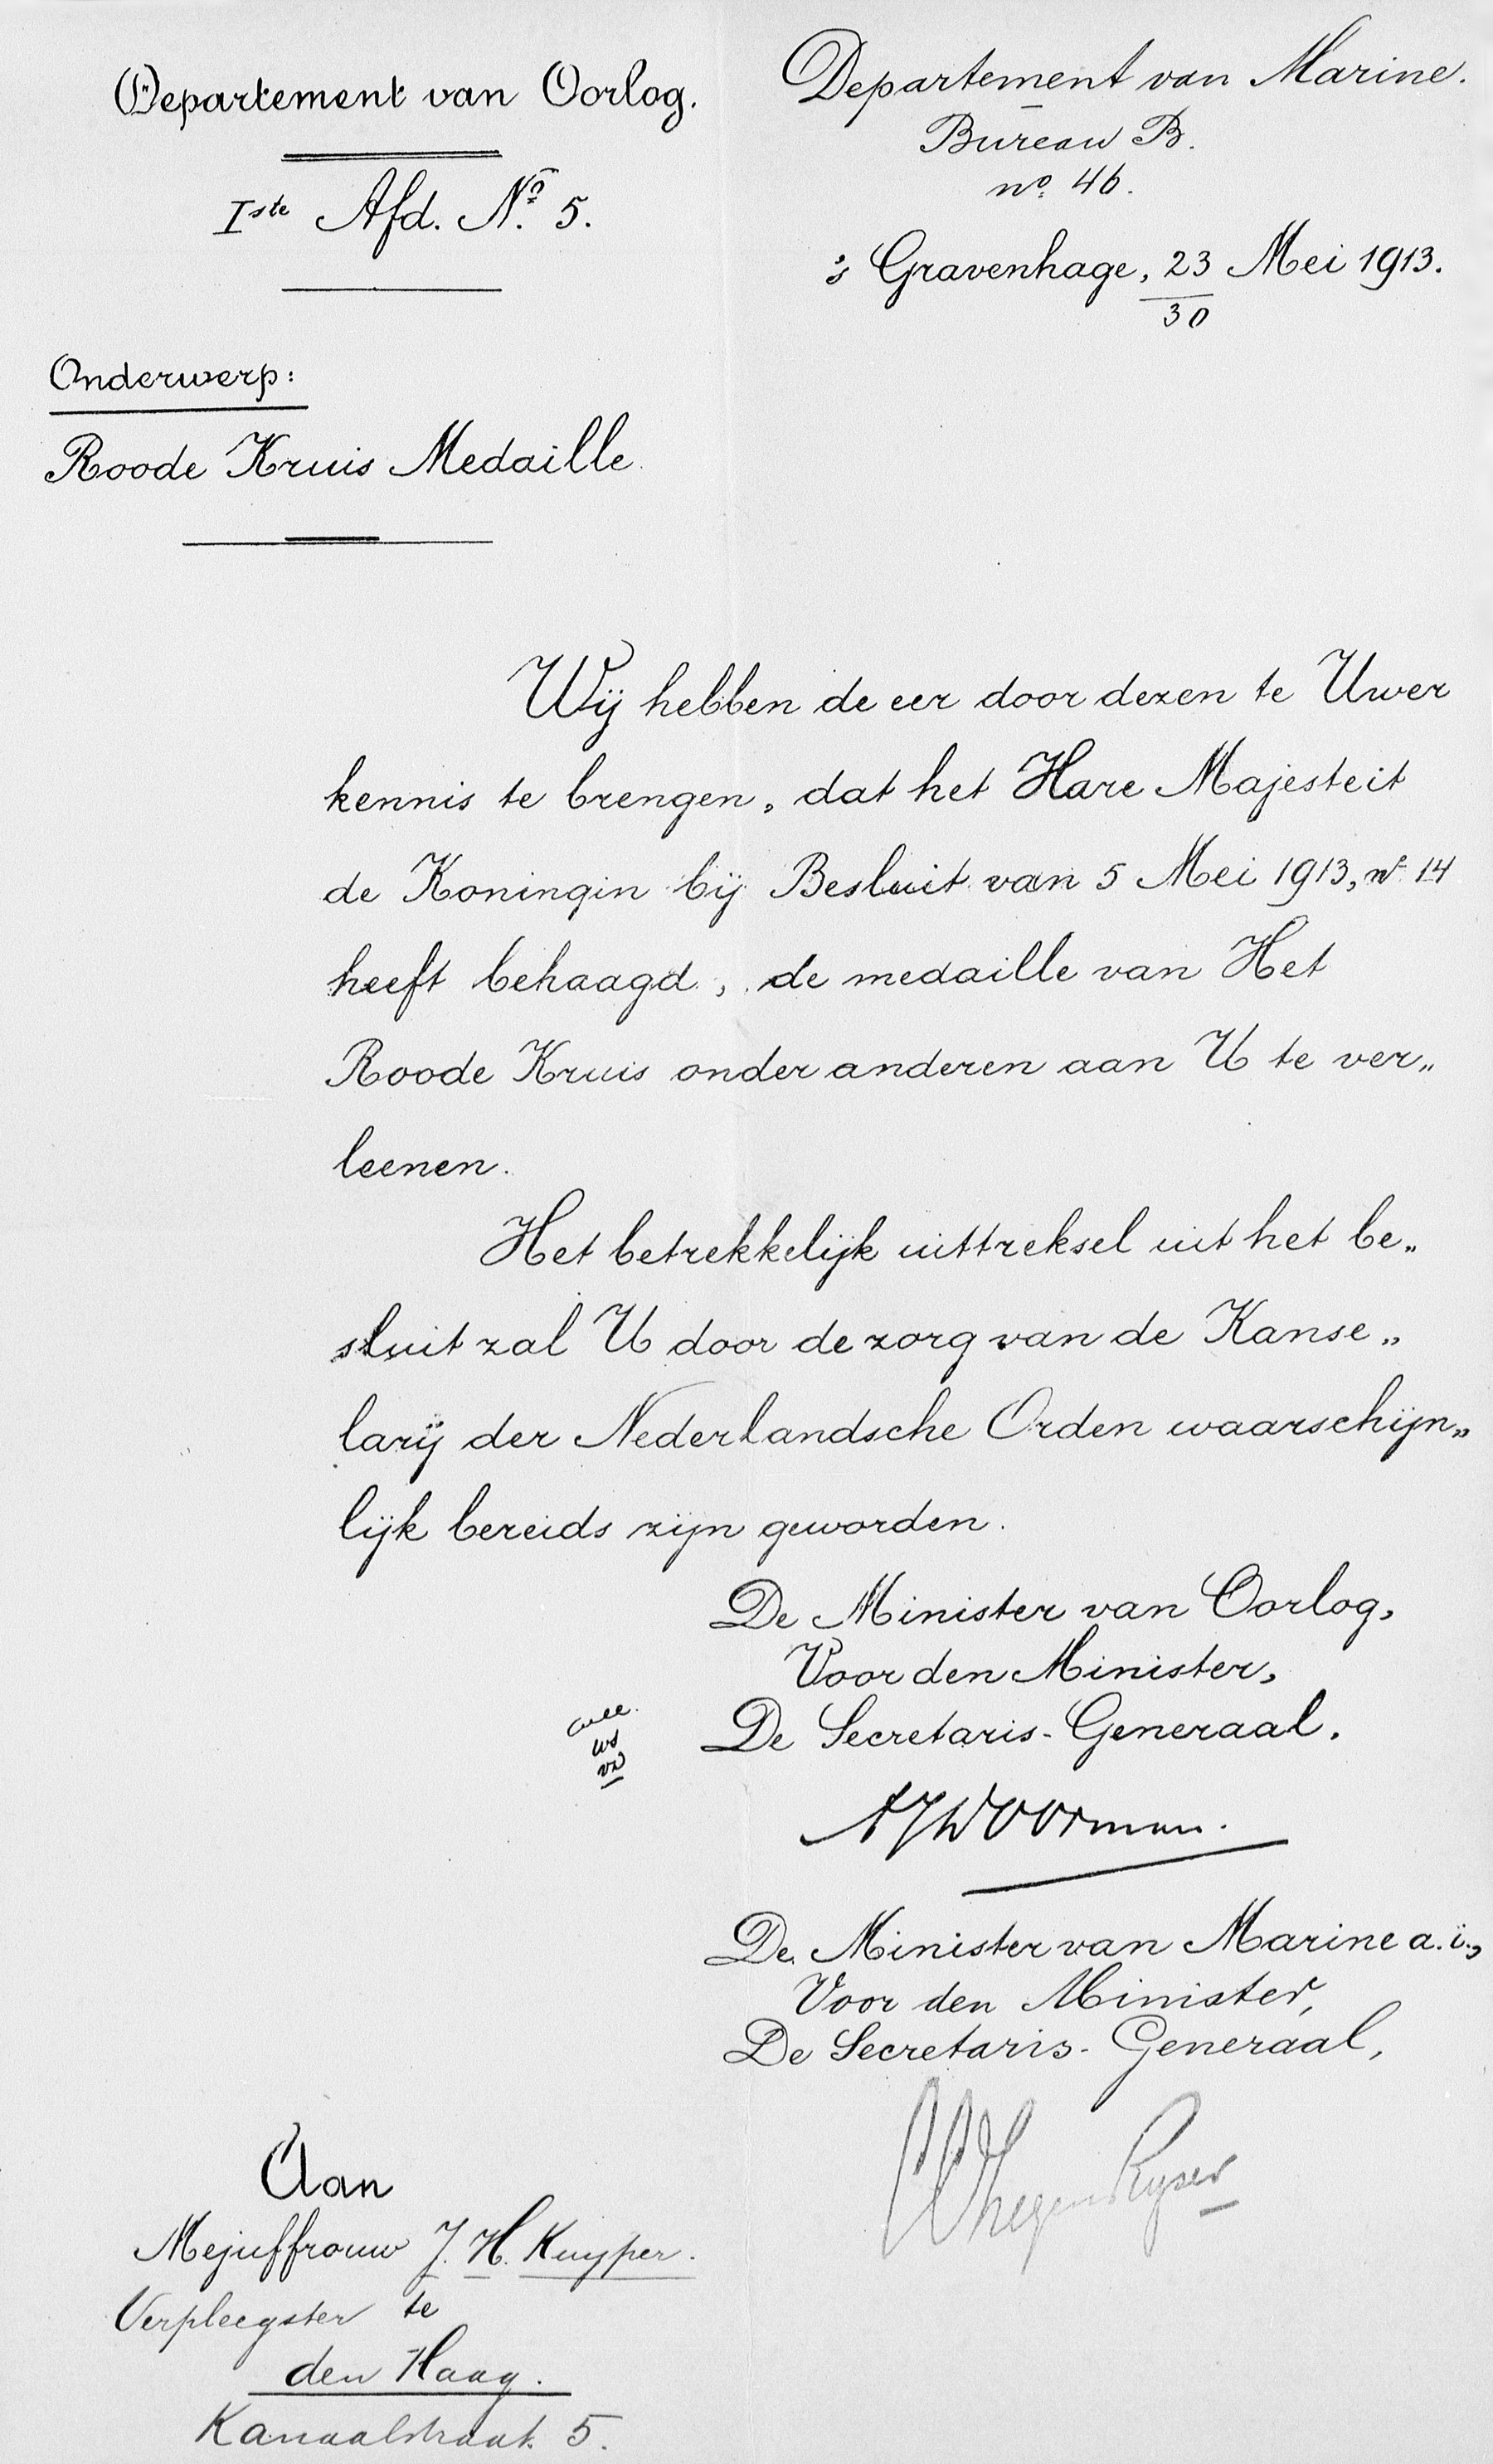 Departement van Oorlog.
Iste Afd. No. 5.
Onderwerp:
Roode Kruis Medaille.
Departement van Marine.
Bureau B.
no. 46.
's Gravenhage, 23 Mei 1913.
30
Wij hebben de eer door dezen te Uwer
kennis te brengen, dat het Hare Majesteit
de Koningin bij Besluit van 5 Mei 1913, no 14
heeft behaagd, de medaille van Het
Roode Kruis onder anderen aan U te ver„
leenen.
Het betrekkelijk uittreksel uit het be„
sluit zal U door de zorg van de Kanse„
larij der Nederlandsche Orden waarschijn„
lijk bereids zijn geworden.
De Minister van Oorlog,
Voor den Minister,
De Secretaris-Generaal.
De Minister van Marine a.i.,
Voor den Minister,
De Secretaris-Generaal,
Aan
Mejuffrouw J. H. Kuyper.
Verpleegster te
den Haag.
Kanaalstraat 5.